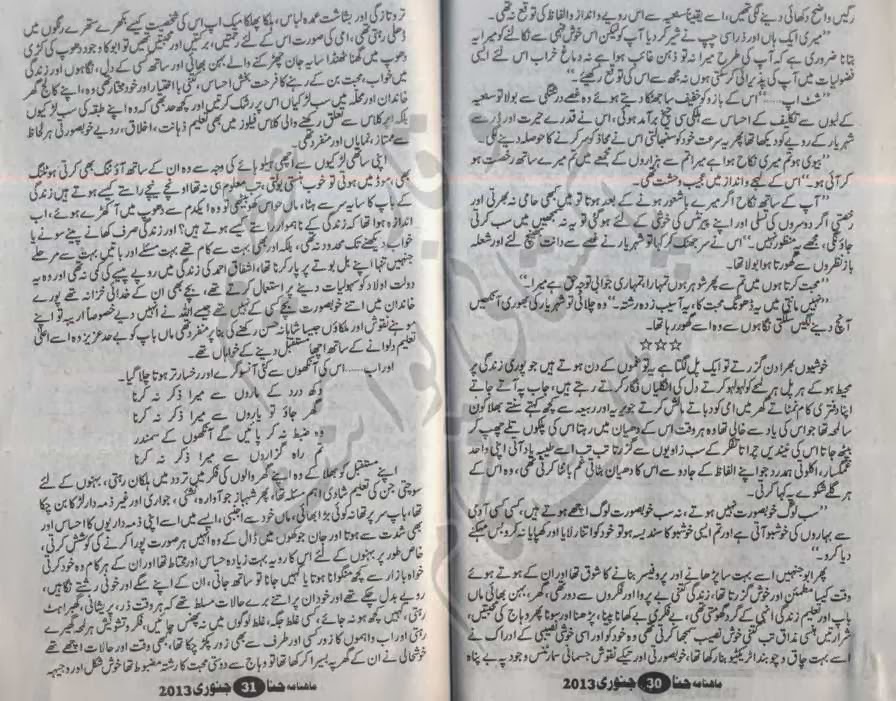 رگیں واضح دکھائی دینے لگی تھیں، اسے یقیناً سنعیہ سے اس رویے و انداز و الفاظ کی توقع نہ تھی۔
"میری ایک ہاں اور ذرا سی چپ نے شیر کر دیا آپ کو لیکن اس خوش فہمی سے نکالنے کو میرا یہ
بتانا ضروری ہے کہ آپ کی طرح میرا نہ تو ذہن غائب ہوا ہے نہ دماغ خراب اس لئے ایسی
فضولیات میں آپ کی پذیرائی کر سکتی ہوں نہ مجھ سے اس کی توقع رکھیئے۔"
"شٹ اپ......" اس کے بازو کو خفیف سا جھٹکا دیتے ہوئے وہ غصے درشتگی سے بولا تو سنعیہ
کے لبوں سے تکلیف کے احساس سے ہلکی سی چیخ برآمد ہوگئی، اس نے قدرے حیرت اور ڈر سے
شہریار کے رویے کو دیکھا تھا، پھر یہ سرعت خود کو سنبھالتی اس نے محاذ کو سر کرنے کا حوصلہ دینے لگی۔
"بیوی ہو تم میری نکاح ہوا ہے میرا تم سے ہزاروں کے مجمعے میں تم میرے ساتھ رخصت ہو
کر آئی ہو۔" اس کے لہجے و انداز میں عجیب وحشت تھی۔
"آپ کے ساتھ نکاح اگر میرے با شعور ہونے کے بعد ہوتا تو میں کبھی حامی نہ بھرتی اور
رخصتی اگر دوسروں کی تسلی اور اپنے پیرنٹس کی خوشی کے لئے ہو گئی تو یہ نہ سمجھیں میں سب کرتی
جاؤ نگی، مجھے یہ منظور نہیں۔" اس نے سر جھٹک کر کہا تو شہریار نے غصے سے دانت بھینچ لئے اور شعلہ
باز نظروں سے گھورتا ہوا بولا تھا۔
"محبت کرتا ہوں میں تم سے پھر شوہر ہوں تمہارا، تمہاری جوابی توجہ حق ہے میرا۔"
"نہیں مانتی میں یہ ڈھونگ محبت کا، یہ آسیب زدہ رشتہ۔" وہ چلائی تو شہریار کی بھوری آنکھیں
آنچ دینے لگیں سلگتی نگاہوں سے وہ اسے گھور رہا تھا۔
☆☆☆
خوشیوں بھرا دن گزرتے تو ایک پل لگتا ہے یہ تو غموں کے دن ہوتے ہیں جو پوری زندگی پر
محیط ہو کے ہر پل ہر لمحے کو لہولہو کرتے دل کی انگلیاں فگار کرتے رہتے ہیں، جاب پہ آتے جاتے
اپنا دفتری کام نمٹاتے گھر میں امی کو دباتے مالش کرتے جویریہ اور ربیعہ سے کچھ کہتے سنتے بھلا کون
سا لمحہ تھا جو اس کی یاد سے خالی تھا وہ ہر وقت اس کے دھیان میں رہتا اس کی پلکوں تلے چھپ کر
بیٹھ جاتا اس کی نیندیں چراتا تفکر کے سب زاویوں سے گزرتا تب تب اسے طیبہ یاد آتی اپنی واحد
غمگسار، اکلوتی ہمدرد جو اپنے الفاظ کے جادو سے اس کا دھیان بٹاتی غم بانٹا کرتی تھی، وہ اس کے
ہر گلے شکوے پہ کہا کرتی۔
"سب لوگ خوبصورت نہیں ہوتے، نہ سب خوبصورت لوگ اچھے ہوتے ہیں، کسی کسی آدمی
سے بہاروں کی خوشبو آتی ہے اور تم ایسی خوشبو کا سندیسہ ہو تو خود کو اتنا رلایا اور کھپایا نہ کرو بس مہکنے
دیا کرو۔"
پھر ابو جنہیں اسے بہت سا پڑھانے اور پروفیسر بنانے کا شوق تھا اور ان کے ہوتے ہوئے
وقت کیسا مطمئن اور خوش گزرتا تھا، زندگی کتنی بے پروا اور فکروں سے دور تھی، گھر، بہن بھائی ماں
باپ اور تعلیم زندگی انہی کے گرد گھومتی تھی، بے فکری سے کھانا پینا، پڑھنا اور سونا پھر وہاج کی محبتیں،
شرارتیں ہنسی مذاق تب کتنی خوش نصیب سمجھا کرتی تھی وہ خود کو اور اسی خوش نصیبی کے ادراک نے
اسے بہت چاق و چوبند اٹریکٹیو بنا رکھا تھا، خوبصورتی اور تیکھے نقوش جسمانی سمارٹنس وجود پہ بے پناہ
ماہنامہ حنا 30 جنوری 2013
تروتازگی اور بشاشت عمدہ لباس، ہلکا پھلکا میک اپ اس کی شخصیت کیسے نکھرے ستھرے رنگوں میں
ڈھلی رہتی تھی، امی کی صورت اس کے لئے رحمتیں، برکتیں اور محبتیں تھیں تو ابو کا وجود دھوپ کی کڑی
دھوپ میں گھنا ٹھنڈا سایہ جان چھڑ کنے والے بہن بھائی اور ساتھ کسی کے دل، نگاہوں اور زندگی
میں خواب، محبت بن کے رہنے کا فرحت بخش احساس، کتنی با اختیار اور خود مختار تھی وہ، اپنے کالج گھر
خاندان اور محلہ میں سب لڑکیاں اس پر رشک کرتیں اور کچھ حسد بھی کہ وہ اپنے طبقہ کی سب لڑکیوں
بلکہ اپر کلاس سے تعلق رکھنے والی کلاس فیلوز میں بھی تعلیم ذہانت، اخلاق، رویے خوبصورتی ہر لحاظ
سے ممتاز، نمایاں اور منفرد تھی۔
اپنی ساتھی لڑکیوں سے اچھی ہیلو ہائے کی وجہ سے وہ ان کے ساتھ آؤٹنگ بھی کرتی ہوٹلنگ
بھی، موڈ میں ہوتی تو خوب ہنستی بولتی، تب معلوم ہی نہ تھا اونچے نیچے راستے کیسے ہوتے ہیں زندگی
کے باپ کا سایہ سر سے ہٹا، ماں حواس کھو بیٹھی تو وہ ایکدم سے دھوپ میں آ کھڑے ہوئے، اب
اندازہ ہوا تھا کہ زندگی کے ناہموار راستے کیسے ہوتے ہیں؟ اور زندگی صرف کھانے پینے سونے یا
خواب دیکھنے تک محدود نہ تھی، بلکہ اور بھی بہت سے کام تھے بہت مسئلے اور باتیں بہت سے مرحلے
جنہیں تنہا اپنے بل بوتے پر پار کرنا تھا، اشفاق احمد کی زندگی میں روپے پیسے کی کمی نہ تھی اور وہ یہ
دولت اولاد کو سہولیات دینے پر استعمال کرتے تھے، بچے بھی ان کے خدائی خزانہ تھے پورے
خاندان میں اتنے خوبصورت بچے کسی کے نہیں تھے جیسے اللہ نے انہیں دیے خصوصاً اریبہ تو اپنے
موہنے نقوش اور ملکاؤں جیسا شاہانہ حسن رکھنے کی بنا پر منفرد تھی ماں باپ کو بے حد عزیز وہ اسے اعلیٰ
تعلیم دلوانے کے ساتھ اچھا مستقبل دینے کے خواہاں تھے۔
اور اب...... اس کی آنکھوں سے کئی آنسو گرے اور رخسار تر ہوتا چلا گیا۔
دکھ درد کے ماروں سے میرا ذکر نہ کرنا
گھر جاؤ تو یاروں سے میرا ذکر نہ کرنا
وہ ضبط نہ کر پائیں گے آنکھوں کے سمندر
تم راہ گزاروں سے میرا ذکر نہ کرنا
اپنے مستقبل کو بھلا کے وہ اپنے گھر والوں کی فکر میں تردد میں ہلکان رہتی، بہنوں کے لئے
سوچتی جن کی تعلیم شادی اہم مسئلہ تھا، پھر شہباز جو آوارہ، نشئی، جواری اور غیر ذمہ دار لڑکا بن چکا
تھا، باپ سر پر تھا نہ کوئی بڑا بھائی، ماں خود سے اجنبی، ایسے میں اسے اپنی ذمہ داریوں کا احساس اور
بھی شدت سے ہوتا اور جان جوکھوں میں ڈال کے وہ انہیں ہر صورت پورا کرنے کی کوشش کرتی،
خاص طور پر بہنوں کے لئے اس کا رویہ بہت زیادہ حساس اور محتاط تھا اور ان کے ہر کام وہ خود کرتی
خواہ بازار سے کچھ منگوانا ہوتا یا کہیں جانا تو ساتھ جاتی، ان کے اپنے سگے اور خونی رشتے نگاہیں،
رویے بدل چکے تھے اور خود ان پر اتنے برے حالات مسلط تھے کہ ہر وقت ڈر، پریشانی، گھبراہٹ
رہتی، کہیں کچھ نہ ہو جائے، کسی غلط جگہ، غلط لوگوں میں نہ پھنس جائیں، فکر و تشویش ہر لمحہ گھیرے
رہتی اور اب واہموں کا زور کسی اور طرف سے بھی زور پکڑ چکا تھا، کبھی وقت اور حالات اچھے تھے
خوشحالی نے ان کے گھر پہ بسیرا کر کھا تھا تو وہاج سے دوستی محبت کا رشتہ مضبوط تھا خوش شکل اور وجیہہ
ماہنامہ حنا 31 جنوری 2013